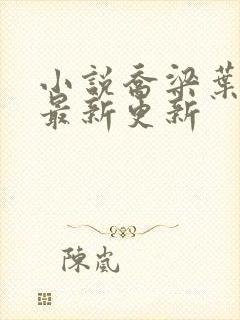 小說喬梁葉
最新更新
陳嵐